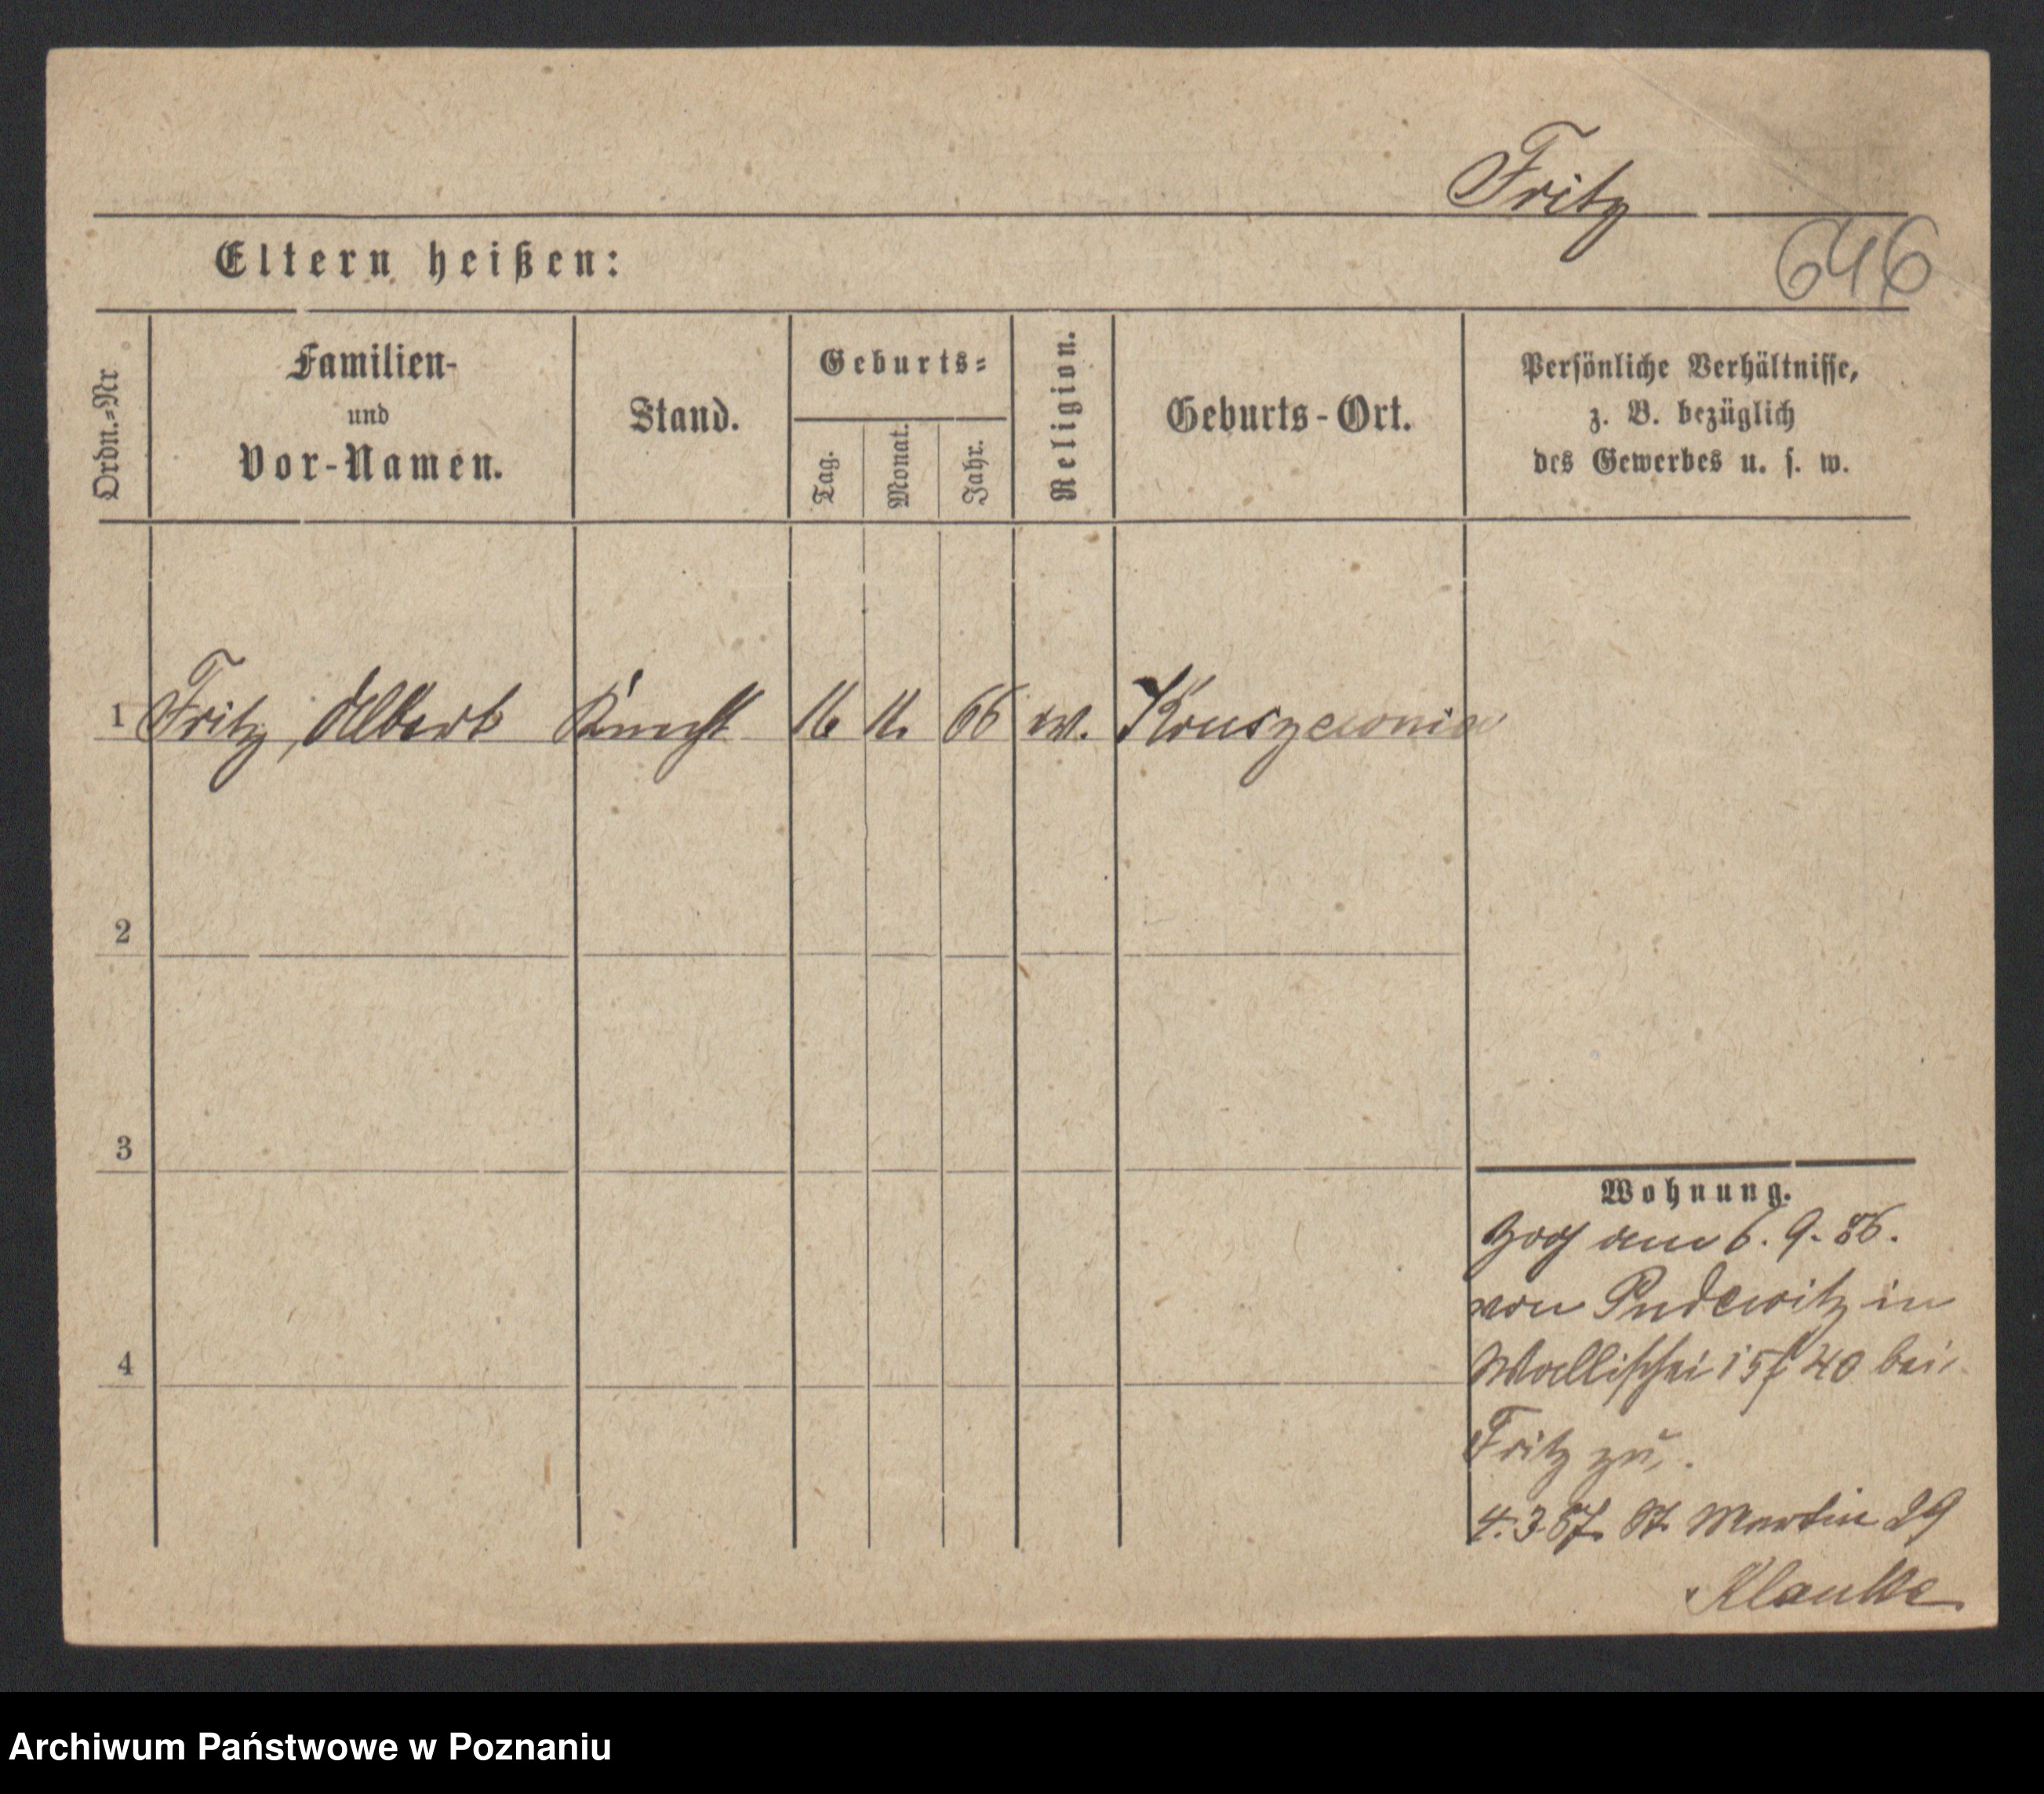 Fritz
646
Eltern heißen:
Ordn.=Nr
Familien-
und
Vor-Namen.
Stand.
Geburts=
Tag.
Monat.
Jahr.
Religion.
Geburts-Ort.
Persönliche Verhältnisse,
z. B. bezüglich
des Gewerbes u. s. w.
1 Fritz, Albert Knecht 16 11. 66 ev. Kruszewnia
2
3
4
Wohnung.
Zog am 6. 9. 86.
von Pudewitz in
Wallischei 40 bei
Fritz zu.
4.3.87. St. Martin 29
Klauke
Archiwum Państwowe w Poznaniu